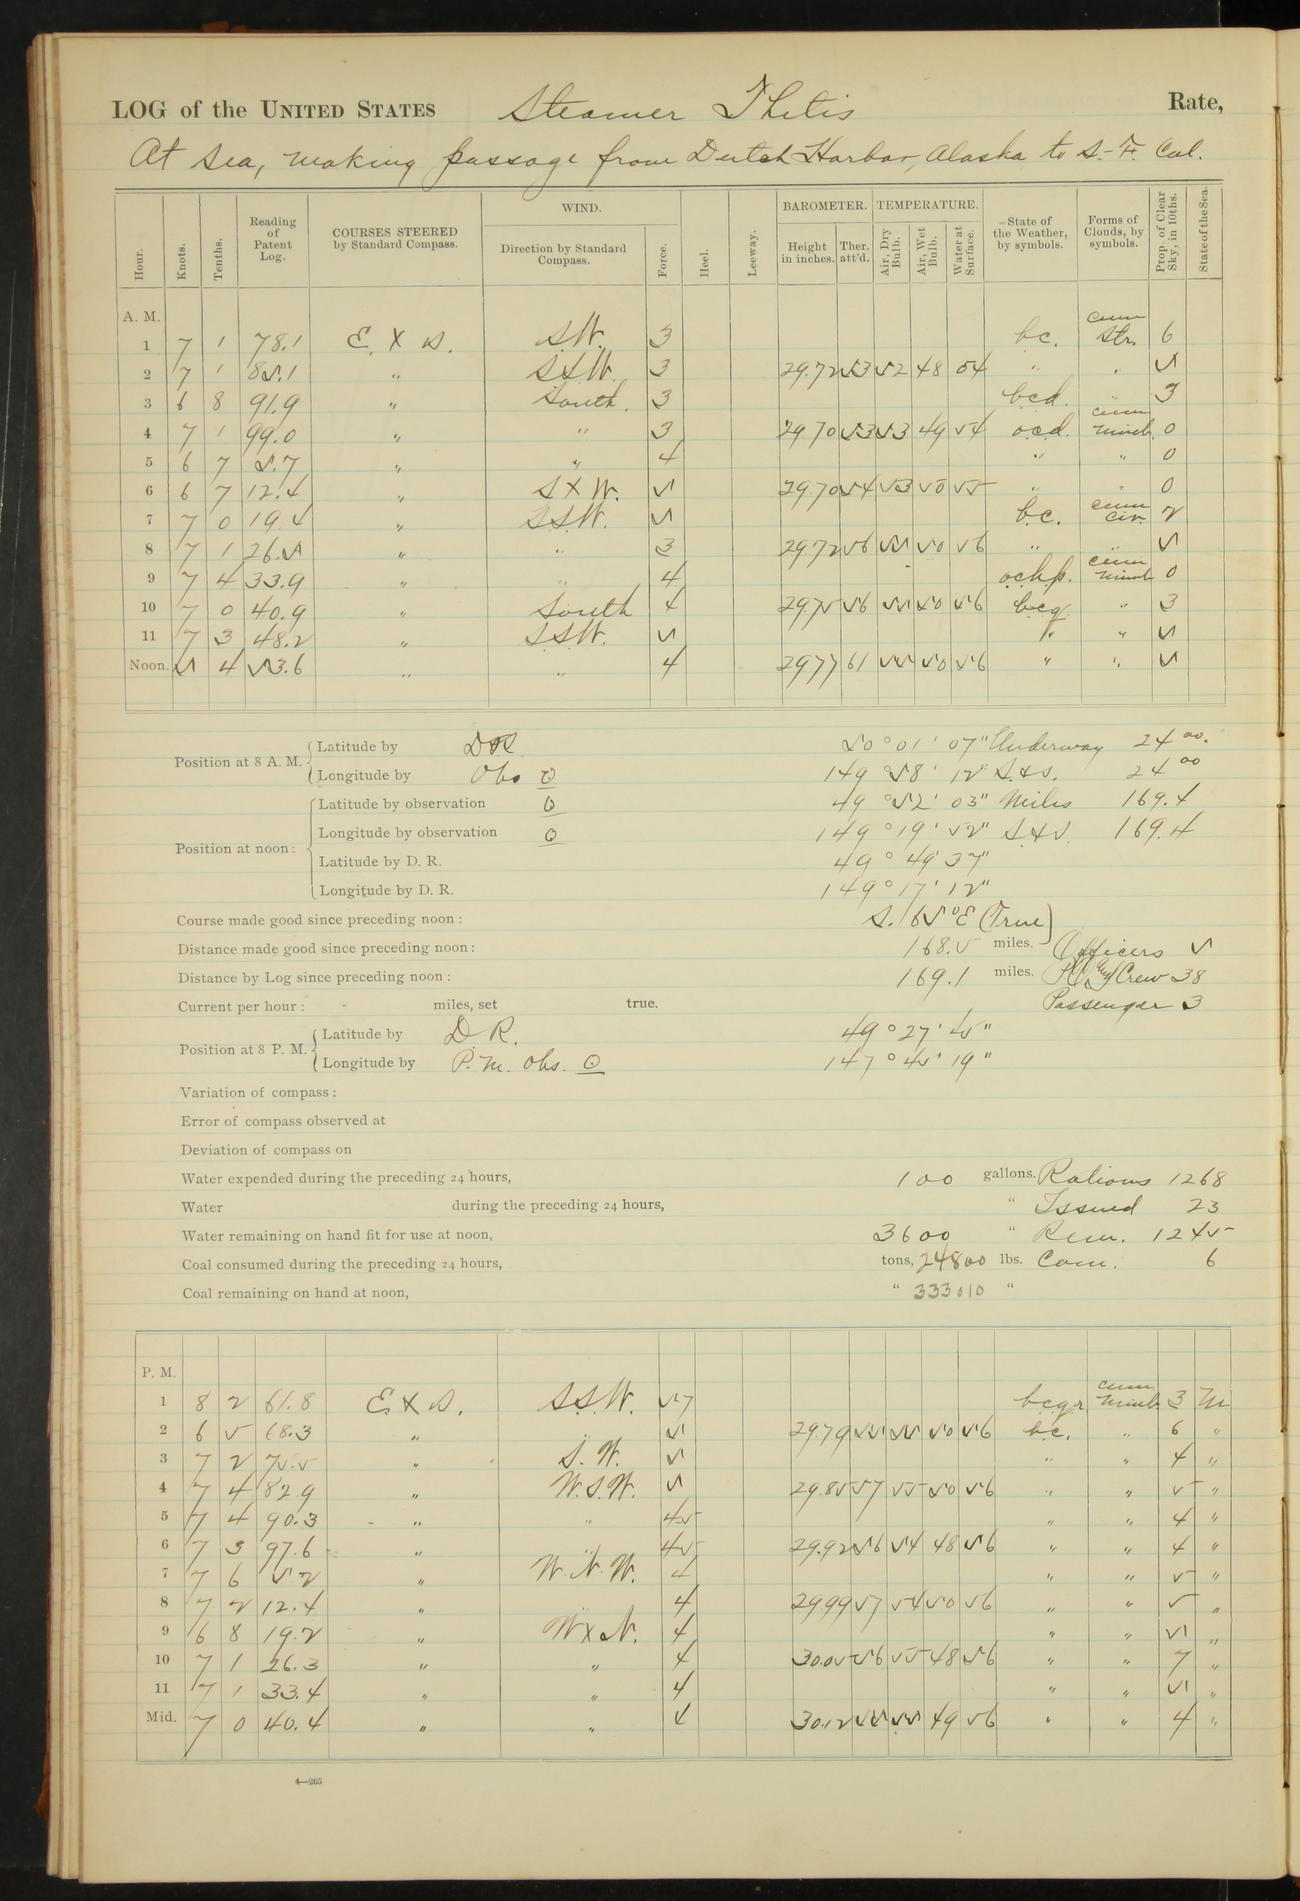 LOG of the UNITED STATES Steamer Thetis Rate,
At sea, making passage from Dutch Harbor, Alaska to S.F. Cal.
Hour. Knots. Tenths. Reading of Patent Log. COURSES STEERED by Standard Compass. WIND. Direction by Standard Compass. Force. Heel. Leeway. BAROMETER. Height in inches. Ther. att'd. TEMPERATURE. Air, Dry Bulb. Air, Wet Bulb. Water at Surface. State of the Weather, by symbols. Forms of Clouds, by symbols. Prop. of Clear Sky, in 10ths. State of the Sea.
A. M.
1 7 1 78.1 E x S. SW. 3 bc. cum Str. 6
2 7 1 85.1 " SSW. 3 29.72 53 52 48 54 " " 5
3 6 8 91.9 " South. 3 bcd. " 3
4 7 1 99.0 " " 3 29.70 53 53 49 54 ocd. cum Nimb. 0
5 6 7 5.7 " " 4 " " 0
6 6 7 12.4 " S x W. 5 29.70 54 53 50 55 " " 0
7 7 0 19.4 " SSW. 5 bc. cum Cir. 2
8 7 1 26.5 " " 3 29.72 56 55 50 56 " " 5
9 7 4 33.9 " " 4 cum Nimb 0
10 7 0 40.9 " South 4 29.75 56 55 50 56 bcq. " 3
11 7 3 48.2 " SSW. 5 " " 5
Noon. 5 4 53.6 " " 4 29.77 61 55 50 56 " " 5
Position at 8 A. M. Latitude by DR 50° 01' 07" Underway 24 00.
Longitude by Obs ☉ 149° 58' 12" S.&S. 24 00
Position at noon: Latitude by observation ☉ 49° 52' 03" Miles 169.4
Longitude by observation ☉ 149° 19' 52" S.&S. 169.4
Latitude by D. R. 49° 49' 37"
Longitude by D. R. 149° 17' 12"
Course made good since preceding noon: S. 65° E (True)
Distance made good since preceding noon: 168.5 miles. Officers 5
Distance by Log since preceding noon: 169.1 miles. Crew 38
Current per hour: miles, set true. Passenger 3
Position at 8 P. M. Latitude by D. R. 49° 27' 45"
Longitude by P.M. Obs. ☉ 147° 45' 19"
Variation of compass:
Error of compass observed at
Deviation of compass on
Water expended during the preceding 24 hours, 100 gallons. Rations 1268
Water during the preceding 24 hours, " Issued 23
Water remaining on hand fit for use at noon, 3600 " Rem. 1245
Coal consumed during the preceding 24 hours, tons, 24800 lbs. Com. 6
Coal remaining on hand at noon, " 333010 "
P. M.
1 8 2 61.8 E x S. SSW. 5-7 bcqr cum Nimb 3 M
2 6 5 68.3 " " 5 29.79 55 55 50 56 bc. " 6 "
3 7 2 75.5 " S. W. 5 " " 4 "
4 7 4 82.9 " W.S.W. 5 29.85 57 55 50 56 " " 5 "
5 7 4 90.3 " " 4-5 " " 4 "
6 7 3 97.6 " " 4-5 29.92 56 54 48 56 " " 4 "
7 7 6 5.2 " W.N.W. 4 " " 5 "
8 7 2 12.4 " 4 29.99 57 54 50 56 " " 5 "
9 6 8 19.2 " W x N. 4 " " 5 "
10 7 1 26.3 " " 4 30.05 56 55 48 56 " " 7 "
11 7 1 33.4 " " 4 " " 5 "
Mid. 7 0 40.4 " " 4 30.12 55 55 49 56 " " 4 "
4—265